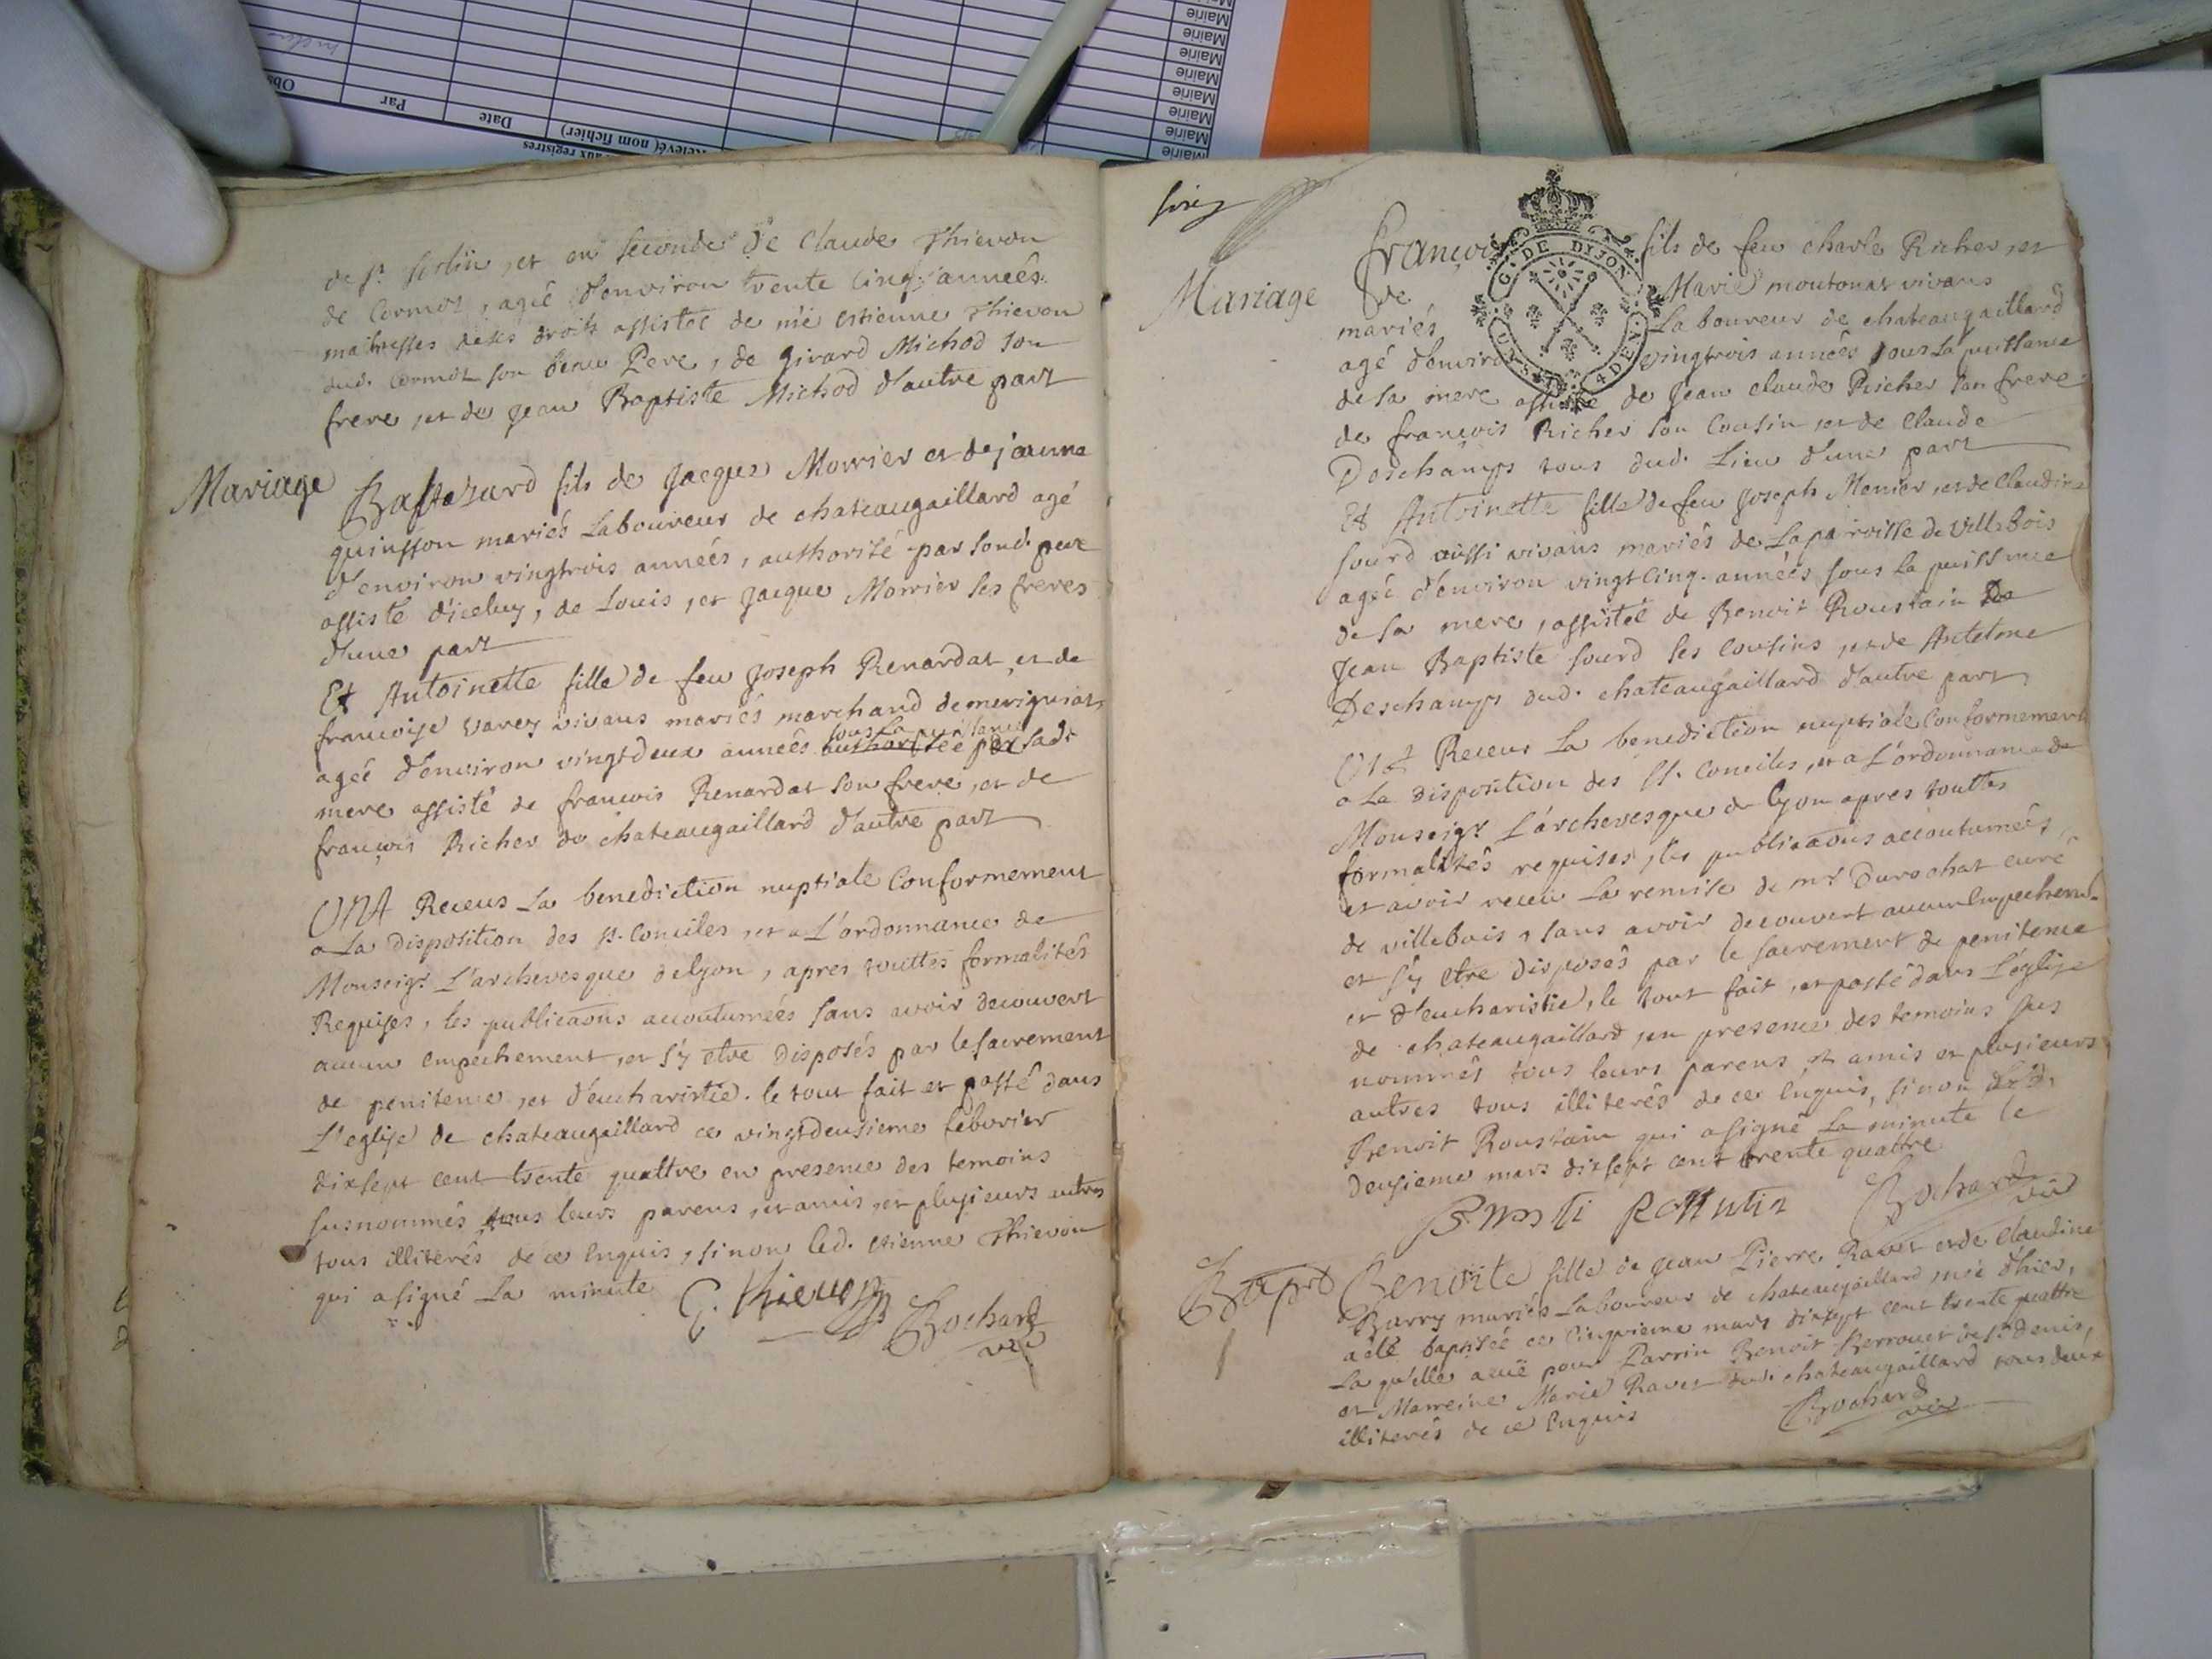 Obs
Par
Date
Relevé( nom fichier)
aux registres
Mairie
Mairie
Mairie
Mairie
Mairie
Mairie
Mairie
Mairie
de St. Sorlin, et en seconde de Claude Thievon
de Cormoz, agée d'environ trente cinq années
maitresses de ses droits assistée de mre Estienne Thievon
dud. Cormoz son beau Pere, de Girard Michod son
frere, et de Jean Baptiste Michod d'autre part
Mariage
Baltazard fils de Jacque Morrier et de jeanne
quinsson mariés Laboureur de chateaugaillard agé
d'environ vingtrois années, authorité par sond. pere
assisté d'iceluy, de Louis, et Jacque Morrier ses freres
d'une part
Et Antoinette fille de feu Joseph Renardat, et de
francoise varey vivans mariés marchand de merignat,
sous La puissance
agée d'environ vingtdeux années authorisée par sadt
mere assisté de francois Renardat son frere, et de
françois Richer de chateaugaillard d'autre part
ONt Receus La benediction nuptiale Conformement
a La disposition des St. Conciles, et a L'ordonnance de
Monseigr L'archevesque de lyon, apres touttes formalités
Requises, les publicaons accoutumées sans avoir decouvert
aucun empechement, et s'y etre disposés par le sacrement
de penitence, et d'eucharistie. le tout fait et passé dans
L'eglise de chateaugaillard ce vingtdeusieme febvrier
dixsept cent trente quattre en presence des temoins
susnommés tous leurs parens, et amis, et plusieurs autres
tous illiterés de ce Enquis, sinon led. Etienne Thievon
qui a signé La minute
E. thievon
Bochard
vic
Mariage
françois fils de feu charle Richer, et
de Marie moutonat vivans
mariés Laboureur de chateaugaillard
agé d'environ vingtrois années sous La puissance
de sa mere assisté de Jean claude Richer son frere
de francois Richer son Cousin, et de Claude
Deschamps tous dud. Lieu d'une part
Et Antoinette fille de feu Joseph Monier, et de Claudine
sourd aussi vivans mariés de La parroisse de Villebois
agée d'environ vingt cinq années sous la puissance
de sa mere, assistée de Benoit Roustain De
Jean Baptiste sourd ses Cousins, et de Antelme
Deschamps dud. chateaugaillard d'autre part
ONt Receus La benediction nuptiale Conformement
a La disposition des St. Conciles, et a L'ordonnance de
Monseigr L'archevesque de lyon apres touttes
formalités requises, les publicaons accoutumées,
et avoir receu La remise de mr Durochat curé
de villebois, sans avoir decouvert aucun Empechemt.
et s'y etre disposés par le sacrement de penitence
et d'eucharistie, le tout fait, et passé dans L'eglise
de chateaugaillard, en presence des temoins sus
nommés tous leurs parens et amis et plusieurs
autres tous illiterés de ce Enquis, sinon led.
Benoit Roustain qui a signé La minute le
deusieme mars dixsept cent trente quattre
Bochard
vic
G. DE DYJON
4 DEN.
Bapt
Benoite fille de Jean Pierre Ravet et de Claudine
Barry mariés Laboureur de chateaugaillard, née d'hier,
a été baptisée ce Cinquieme mars dixsept cent trente quattre
La qu'elle a eüe pour Parrin Benoit Berrouet de St denis,
et Marreine Marie Ravet dud. chateaugaillard tous deux
illiterés de ce Enquis
Bochard
vic